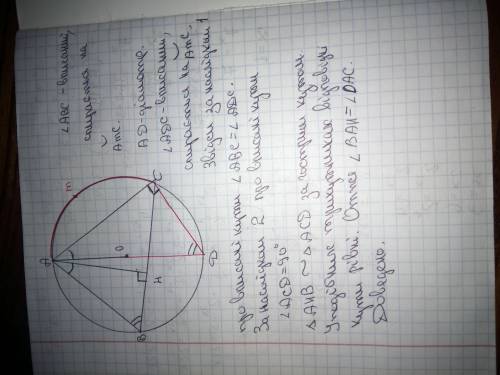 ∠ABC - вписаний,
спирається на
AmC.
AD - діаметр.
∠ADC - вписаний,
спирається на AmC.
Звідси за наслідком 1
m
A
O
C
H
B
D
про вписані кути ∠ABC = ∠ADC.
За наслідком 2 про вписані кути
∠ACD = 90°
△AHB ~ △ACD за гострим кутом.
У подібних трикутниках відповідні
кути рівні. Отже ∠BAH = ∠DAC.
Доведено.